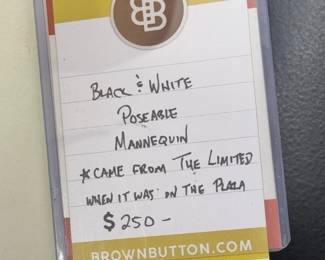 BB
BLACK & WHITE
POSEABLE
MANNEQUIN
*CAME FROM THE LIMITED
WHEN IT WAS ON THE PLAZA
$250-
BROWNBUTTON.COM